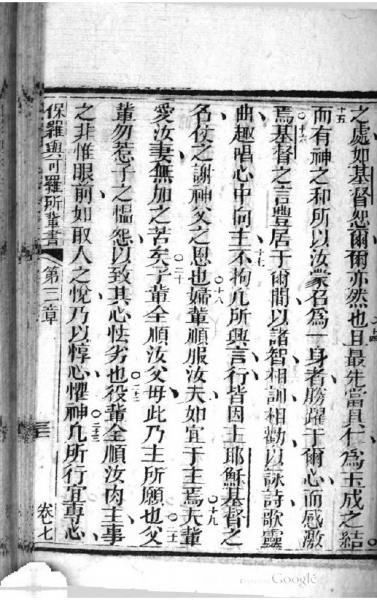 之處如基督恕爾爾亦然也且最先當具仁為玉成之結
十五
十四
而有神之和所以汝蒙召為一身者勝躍于爾心而感激
十六
焉基督之言豐居于爾間以諸智相訓相勸以詠詩歌靈
十七
曲趣唱心中向主不拘凡所興言行皆因主耶穌基督之
十八
十九
名仗之謝神父之恩也婦輩順服汝夫如宜于主焉夫輩
二十
二一
愛汝妻無加之苦矣子輩全順汝父母此乃主所願也父
二二
輩勿惹子之慍怨以致其心怯劣也役輩全順汝肉主事
二三
之非惟眼前如取人之悅乃以惇心懼神凡所行宜專心
保羅與可羅所輩書
第三章
三
卷七
Google